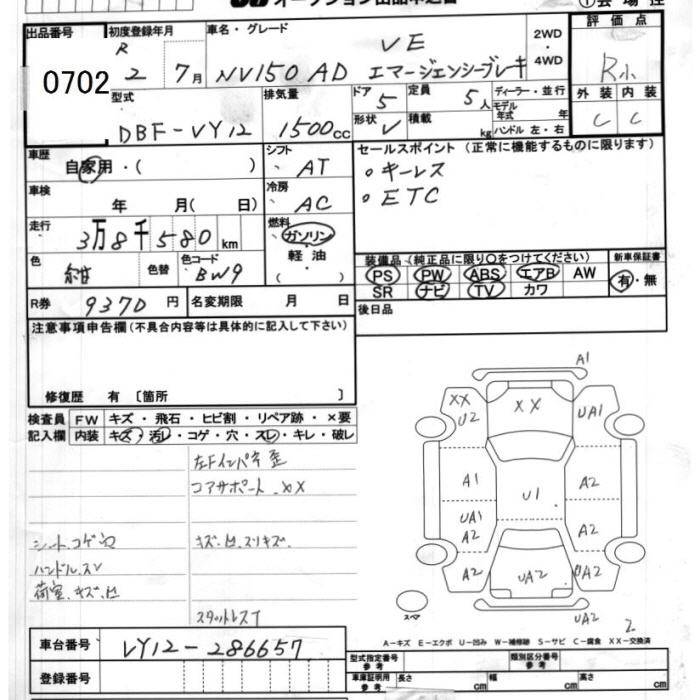 オークション出品申込書
出品番号 0702
初度登録年月 R 2 7月
車名・グレード VE
NV150 AD エマージェンシーブレーキ
2WD
4WD
評価点 R小
外装 内装
C C
型式 DBF-VY12
排気量 1500cc
ドア 5
形状 V
定員 5人
積載 kg
ディーラー・並行
モデル年式 年
ハンドル 左・右
車歴 自家用・( )
シフト AT
セールスポイント (正常に機能するものに限ります)
・キーレス
・ETC
車検 年 月( 日)
冷房 AC
走行 3万8千580km
燃料 ガソリン
軽・油
( )
色 紺
色替
色コード BW9
装備品 (純正品に限り〇をつけてください)
新車保証書
PS PW ABS エアB AW
SR ナビ TV カワ
有・無
R券 9370円
名変期限 月 日
後日品
注意事項申告欄(不具合内容等は具体的に記入して下さい)
修復歴 有 〔箇所 〕
検査員記入欄
FW キズ・飛石・ヒビ割・リペア跡・×要
内装 キズ・汚レ・コゲ・穴・スレ・キレ・破レ
左Fインパネ歪
コアサポート.XX
シート.コゲ穴 キズ.凹.スリキズ.
ハンドル.スレ
荷室.キズ.凹
スタットレスT
A1
XX
U2
XX
UA1
A1
A2
U1
UA1
A2
A2
A2
UA2
UA2
スペア
UA2
2
A-キズ E-エクボ U-凹み W-補修跡 S-サビ C-腐食 XX-交換済
車台番号 VY12-286657
登録番号
型式指定番号 参考
類別区分番号 参考
車庫証明用 参考
長さ cm
幅 cm
高さ cm